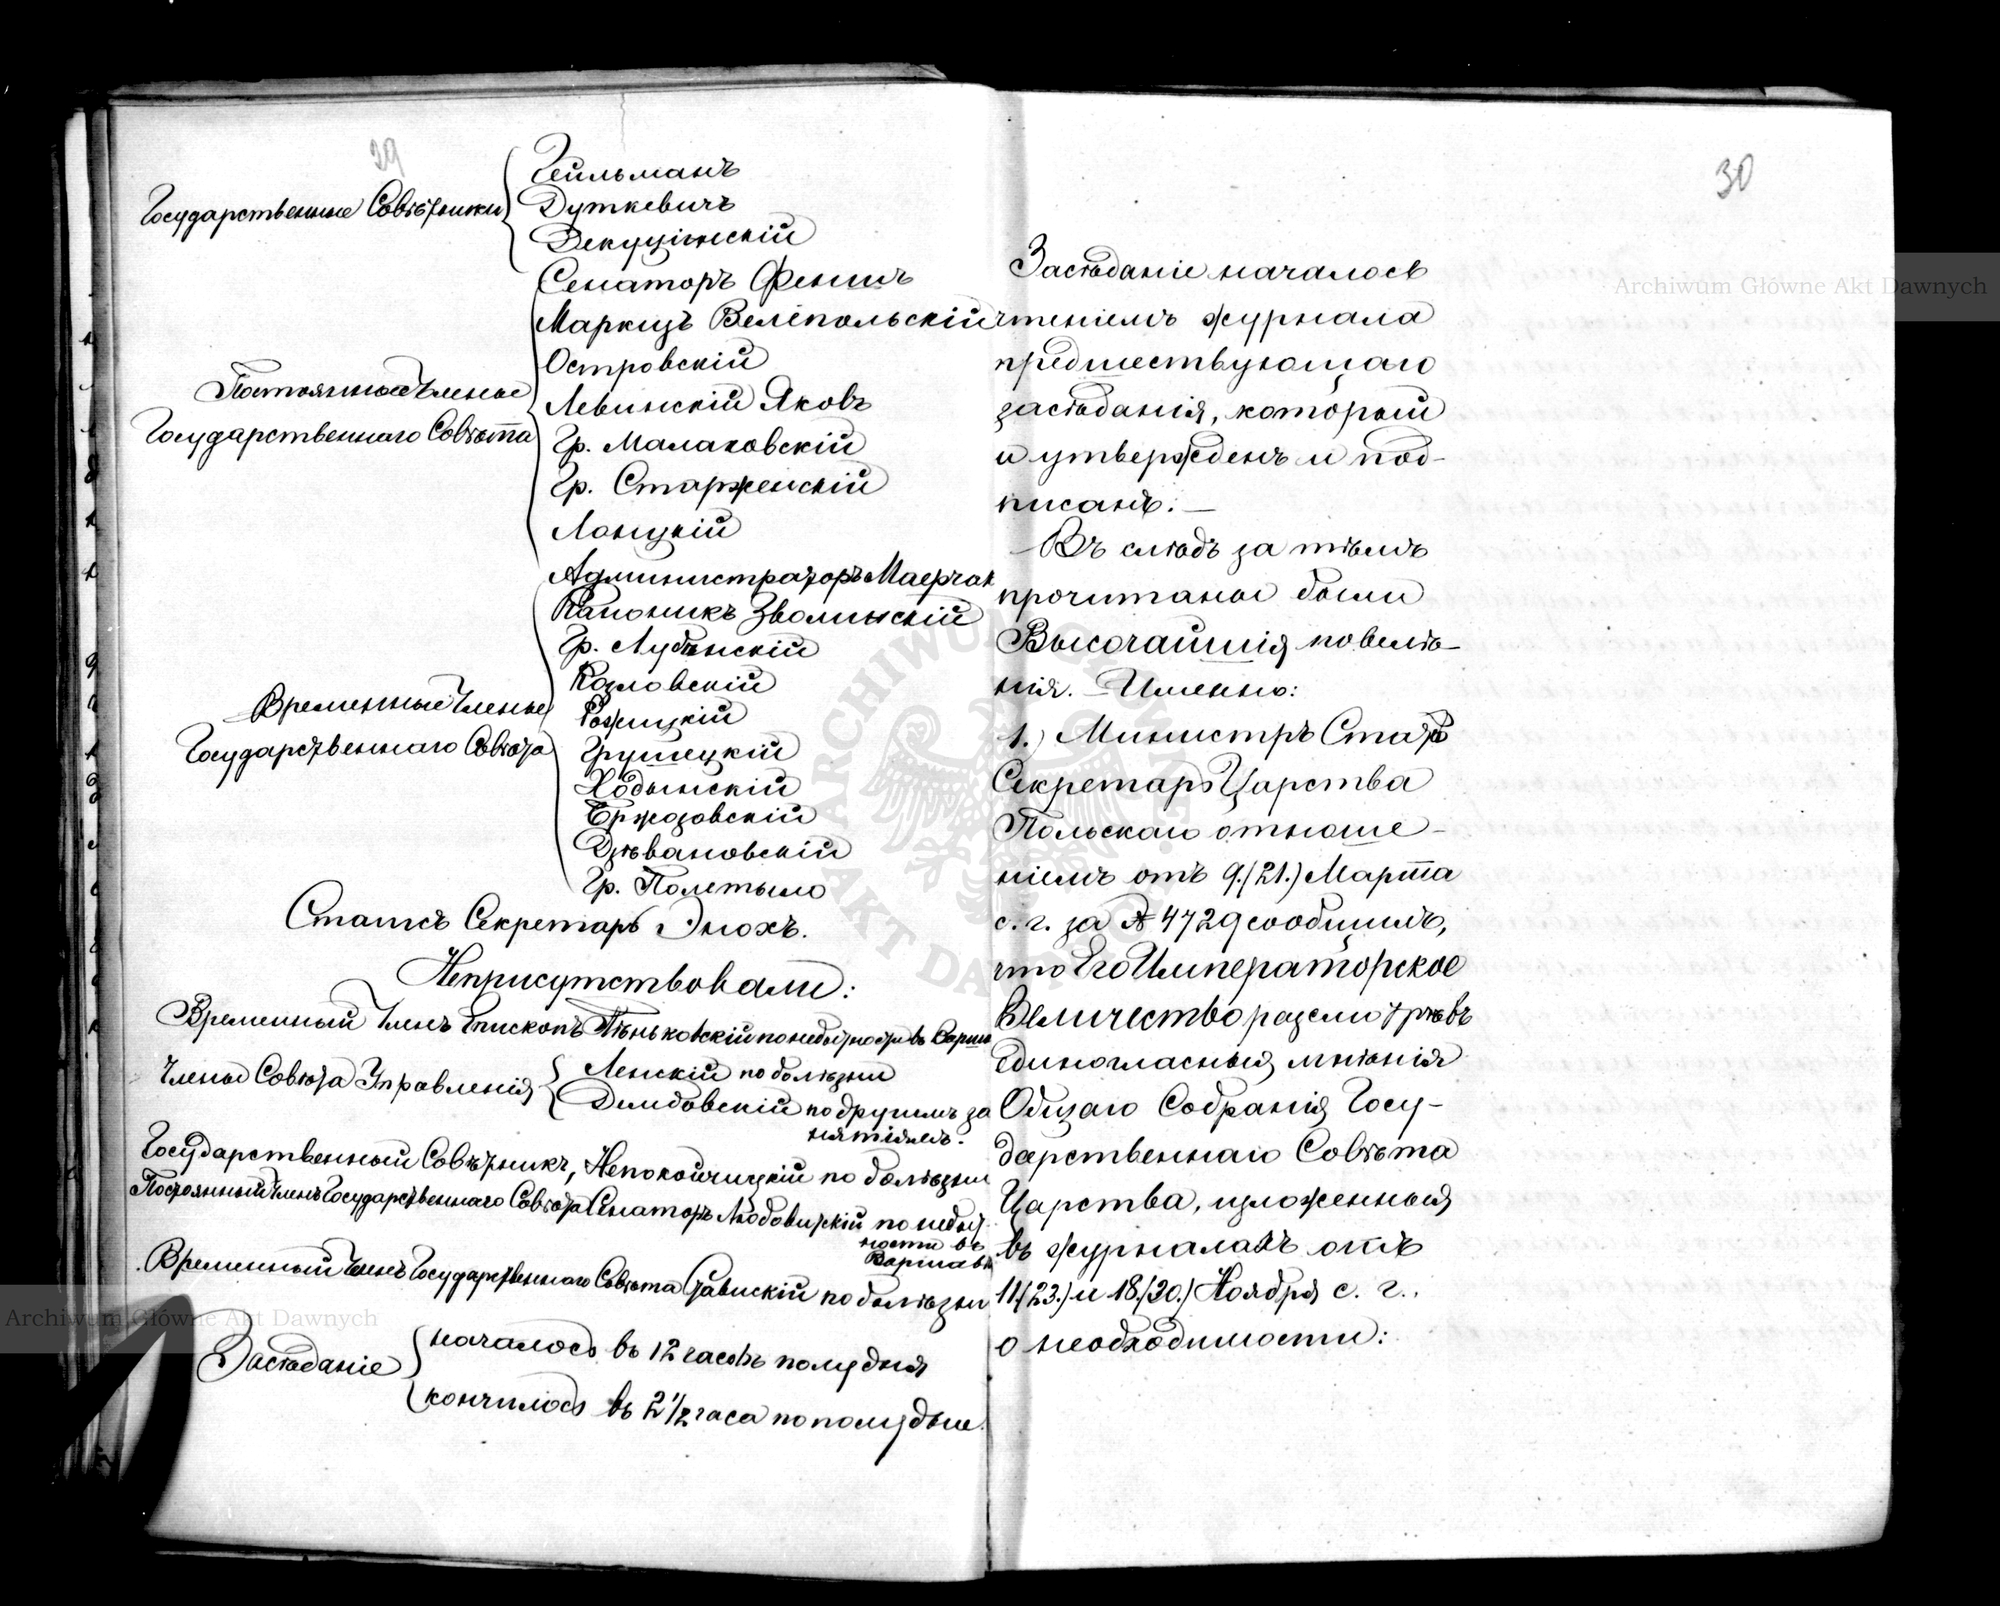 29
Государственные Совѣтники
Гейльманъ
Дуткевичъ
Векуцинскій
Постоянные Члены
Государственнаго Совѣта
Сенаторъ Феншъ
Маркизъ Велёпольскій
Островскій
Левинскій Яковъ
Гр. Малаховскій
Гр. Старженскій
Лонцкій
Временные Члены
Государственнаго Совѣта
Администраторъ Маерчак
Каноникъ Зволинскій
Гр. Лубѣнскій
Козловскій
Рожицкій
Грушецкій
Ходынскій
Бржозовскій
Дзѣвановскій
Гр. Полетыло
Статсъ Секретарь Энохъ.
Неприсутствовали:
Временный Членъ Епископъ Пѣньковскій по небытности въ Варша
Члены Совѣта Управленія
Ленскій по болѣзни
Дембовскій по другимъ за
нятіямъ.
Государственный Совѣтникъ, Непокойчицкій по болѣзни
Постоянный Членъ Государственнаго Совѣта Сенаторъ Любовидскій по небыт
ности въ
Варшавѣ
Временный Членъ Государственнаго Совѣта по болѣзни
Засѣданіе
началось въ 12 часовъ полудня
кончилось въ 2 1/2 часа по полудни.
30
Засѣданіе началось
чтеніемъ журнала
предшествующаго
засѣданія, который
и утвержденъ и под-
писанъ. —
Въ слѣдъ за тѣмъ
прочитаны были
Высочайшія повелѣ-
нія. Именно:
1.) Министръ Статсъ
Секретарь Царства
Польскаго отноше-
ніемъ отъ 9./21.) Марта
с. г. за № 4729 сообщилъ,
что Его Императорское
Величество разсмотрѣвъ
единогласныя мнѣнія
Общаго Собранія Госу-
дарственнаго Совѣта
Царства, изложенныя
въ журналахъ отъ
11./23.) и 18./30.) Ноября с. г.,
о необходимости:
Archiwum Główne Akt Dawnych
Archiwum Główne Akt Dawnych